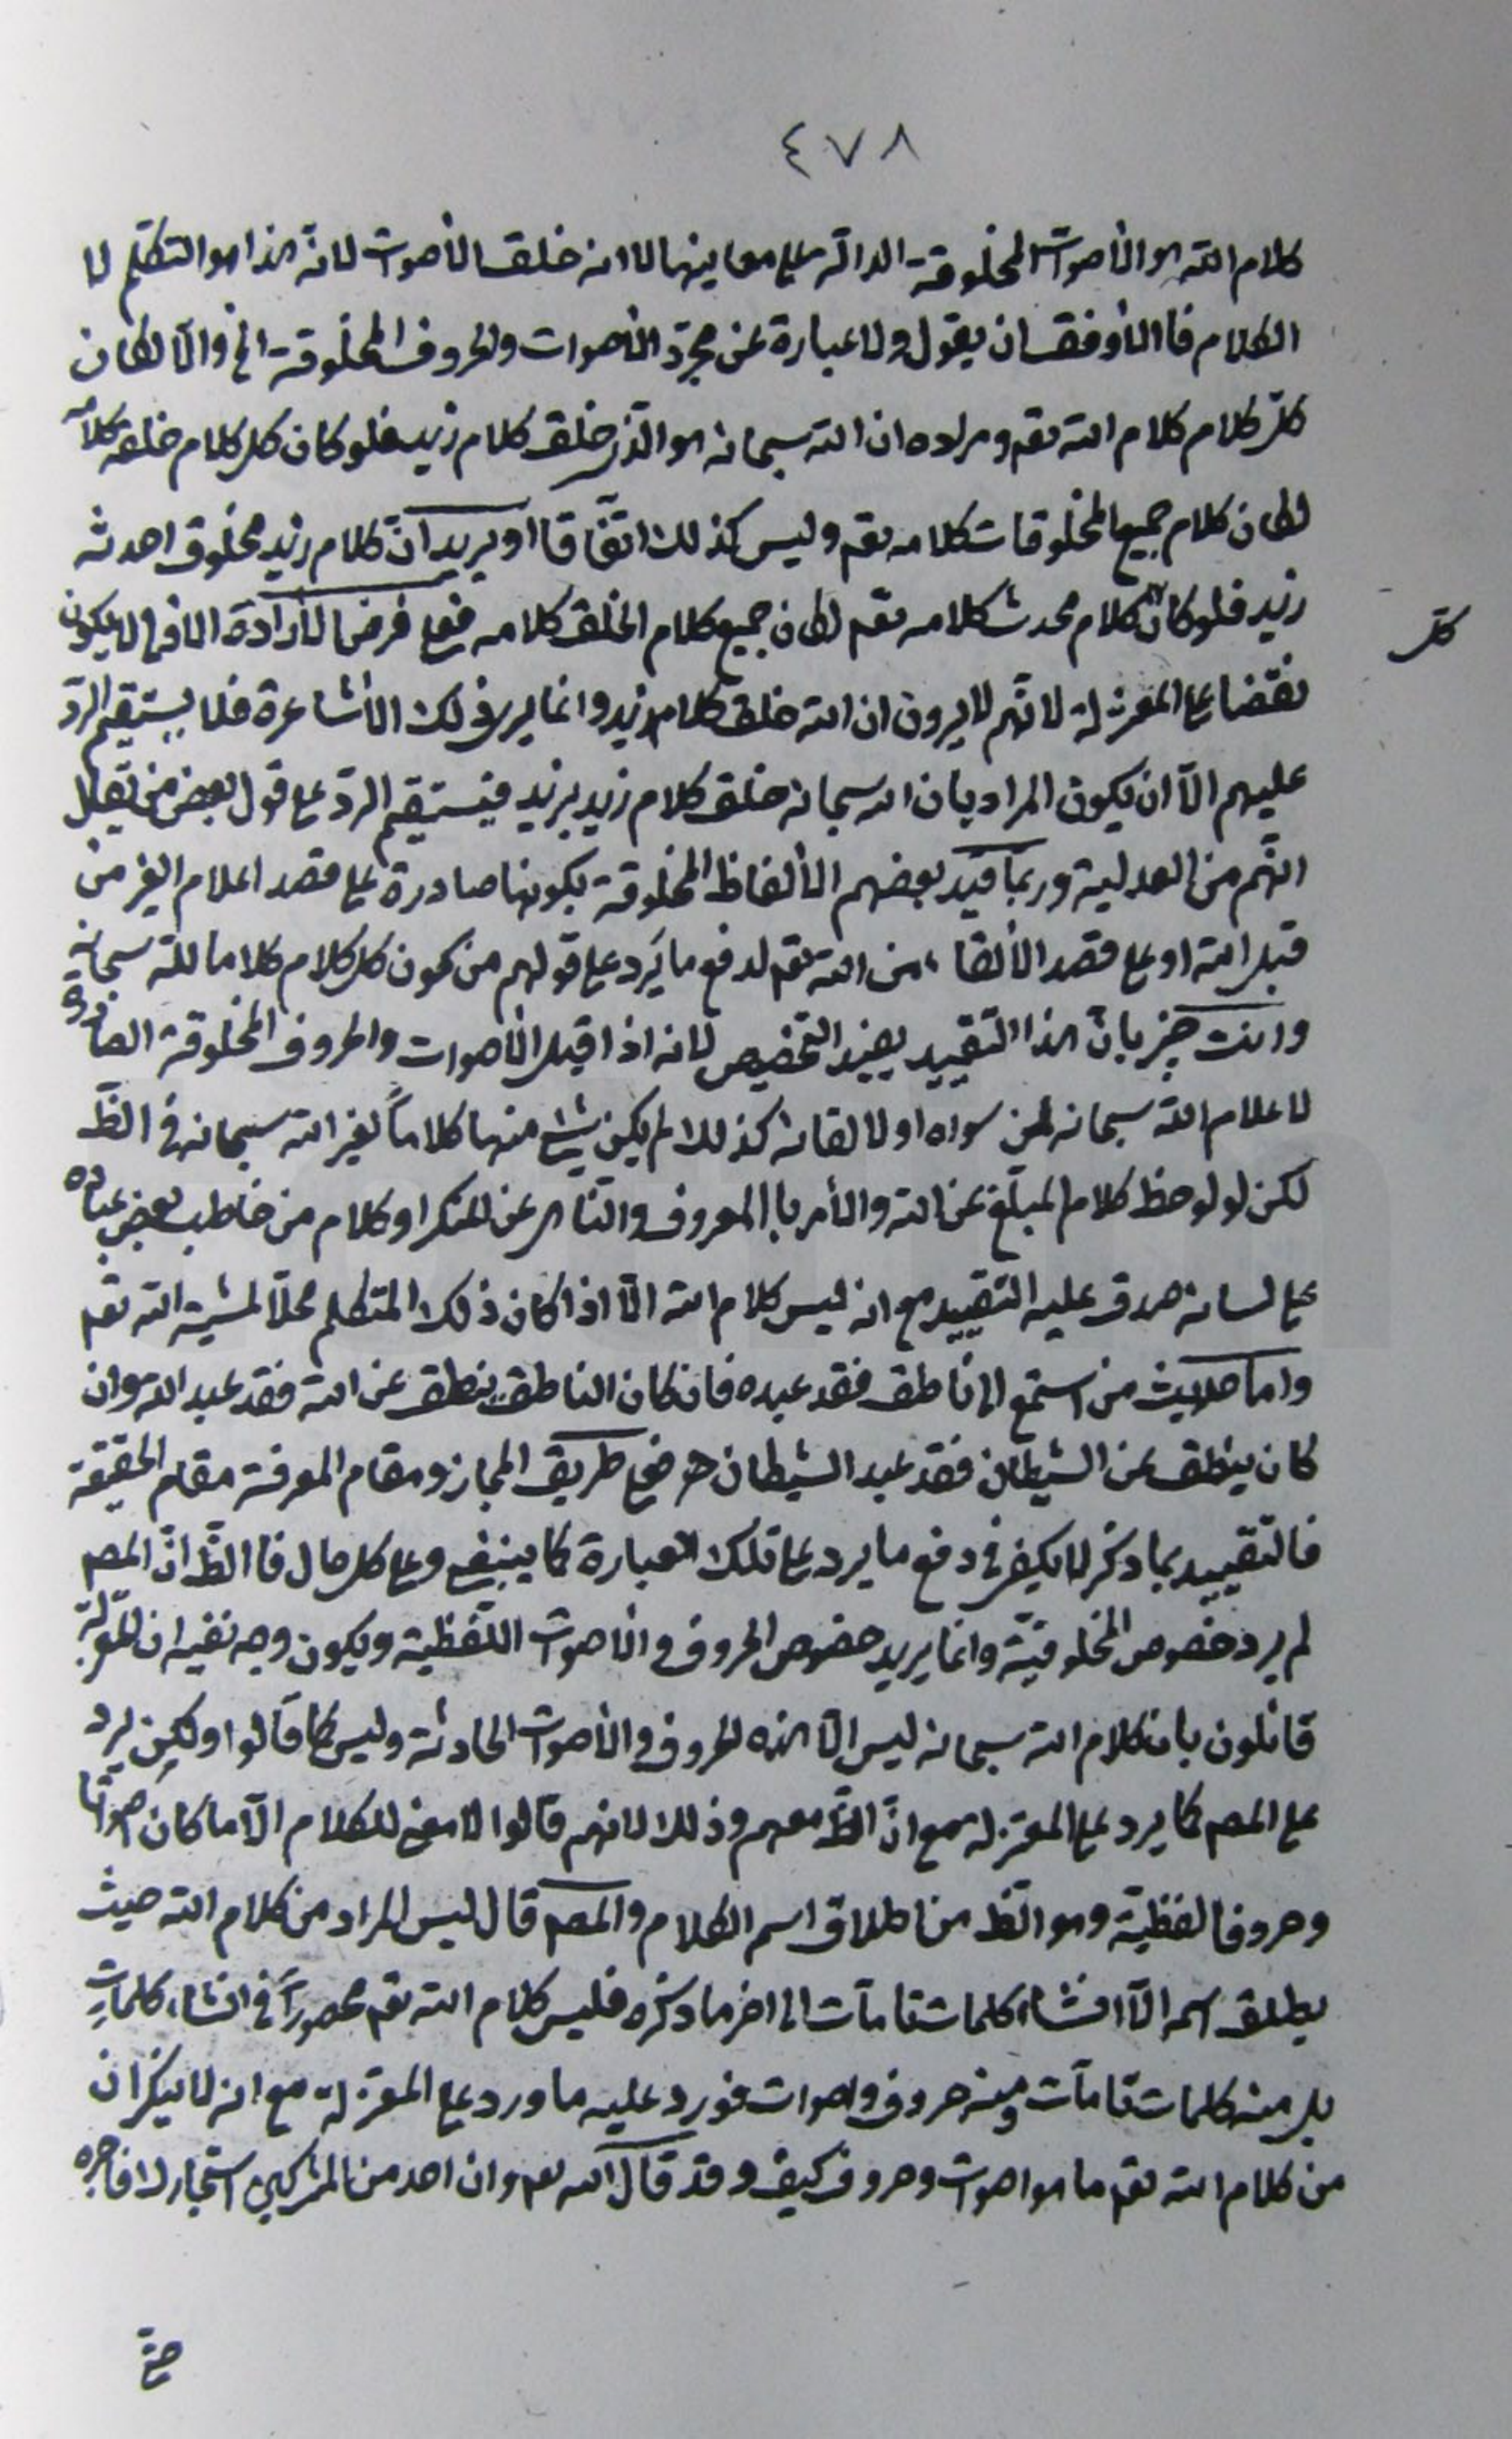 ٤٧٨
كلام الله هو الأصوات المخلوقة الدالة على معانيها لا انه خلق الأصوات لانه هذا هو التكلّم لا
الكلام فالأوفق ان يقول ولا عبارة عن مجرّد الأصوات والحروف المخلوقة الخ والّا لكان
كلّ كلام كلام الله تعم ومراده ان الله سبحانه هو الّذي خلق كلام زيد فلو كان كل كلام خلقه كلامه
لكان كلام جميع المخلوقات كلامه تعم وليس كذلك اتّفاقا او يريد انّ كلام زيد مخلوق احدثه
زيد فلو كان كلام محدث كلامه تعم لكان جميع كلام الخلق كلامه فعلى فرض الأرادة الاولى لا يكون
كلّ
نقضا على المعتزلة لانّهم لا يرون ان الله خلق كلام زيد وانما يرى ذلك الأشاعرة فلا يستقيم الردّ
عليهم الّا ان يكون المراد بان الله سبحانه خلق كلام زيد بزيد فيستقيم الردّ على قول بعض من تقبل
انّهم من العدلية وربّما قيّد بعضهم الألفاظ المخلوقة بكونها صادرة على قصد اعلام الغير من
قبل الله او على قصد الألقاء من الله تعم لدفع ما يَرد على قولهم من كون كل كلام كلاما لله سبحانه
وانت خبير بانّ هذا التّقييد يفيد التّخصيص لانه اذا قيل الأصوات والحروف المخلوقة الصادرة
لاعلام الله سبحانه لمن سواه او لالقائه كذلك لم يكن شئ منها كلاماً لغير الله سبحانه في الظّ
لكن لو لوحظ كلام المبلّغ عن الله والأمر باالمعروف والنّاهى عن المنكر او كلام من خاطب بعض عباده
على لسانه صدق عليه التّقييد مع انه ليس كلام الله الّا اذا كان ذلك المتكلم محلّاً لمشية الله تعم
واما حديث من استمع الى ناطق فقد عبده فان كان الناطق ينطق عن الله فقد عبد الله وان
كان ينطق عن الشيطان فقد عبد الشيطان فعلى طريق المجاز ومقام المعرفة مقام الحقيقة
فالتّقييد بما ذكر لا يكفى في دفع ما يرد على تلك العبارة كما ينبغى وعلى كل حال فاالظّ انّ المصم
لم يرد خصوص المخلوقيّة وانما يريد خصوص الحروف والأصوات اللّفظية ويكون وجه نفيه ان المعتزلة
قائلون بان كلام الله سبحانه ليس الّا هذه الحروف والأصوات الحادثة وليس كما قالوا ولكن يرد
على المصم كما يرد على المعتزلة مع انّ الظّ معهم وذلك لانهم قالوا لا معنى للكلام الّا ما كان اصواتا
وحروفا لفظيّة وهو الظّ من اطلاق اسم الكلام والمصم قال ليس المراد من كلام الله حيث
يطلق اسمه الّا انشاء كلمات تامات الى اخر ما ذكره فليس كلام الله تعم محصوراً في انشاء كلمات
بل منه كلمات تامات ومنه حروف واصوات فورد عليه ما ورد على المعتزلة مع انه لا ينكر ان
من كلام الله تعم ما هو اصوات وحروف كيف وقد قال الله تعم وان احد من المشركين استجارك فاجره
حتّى